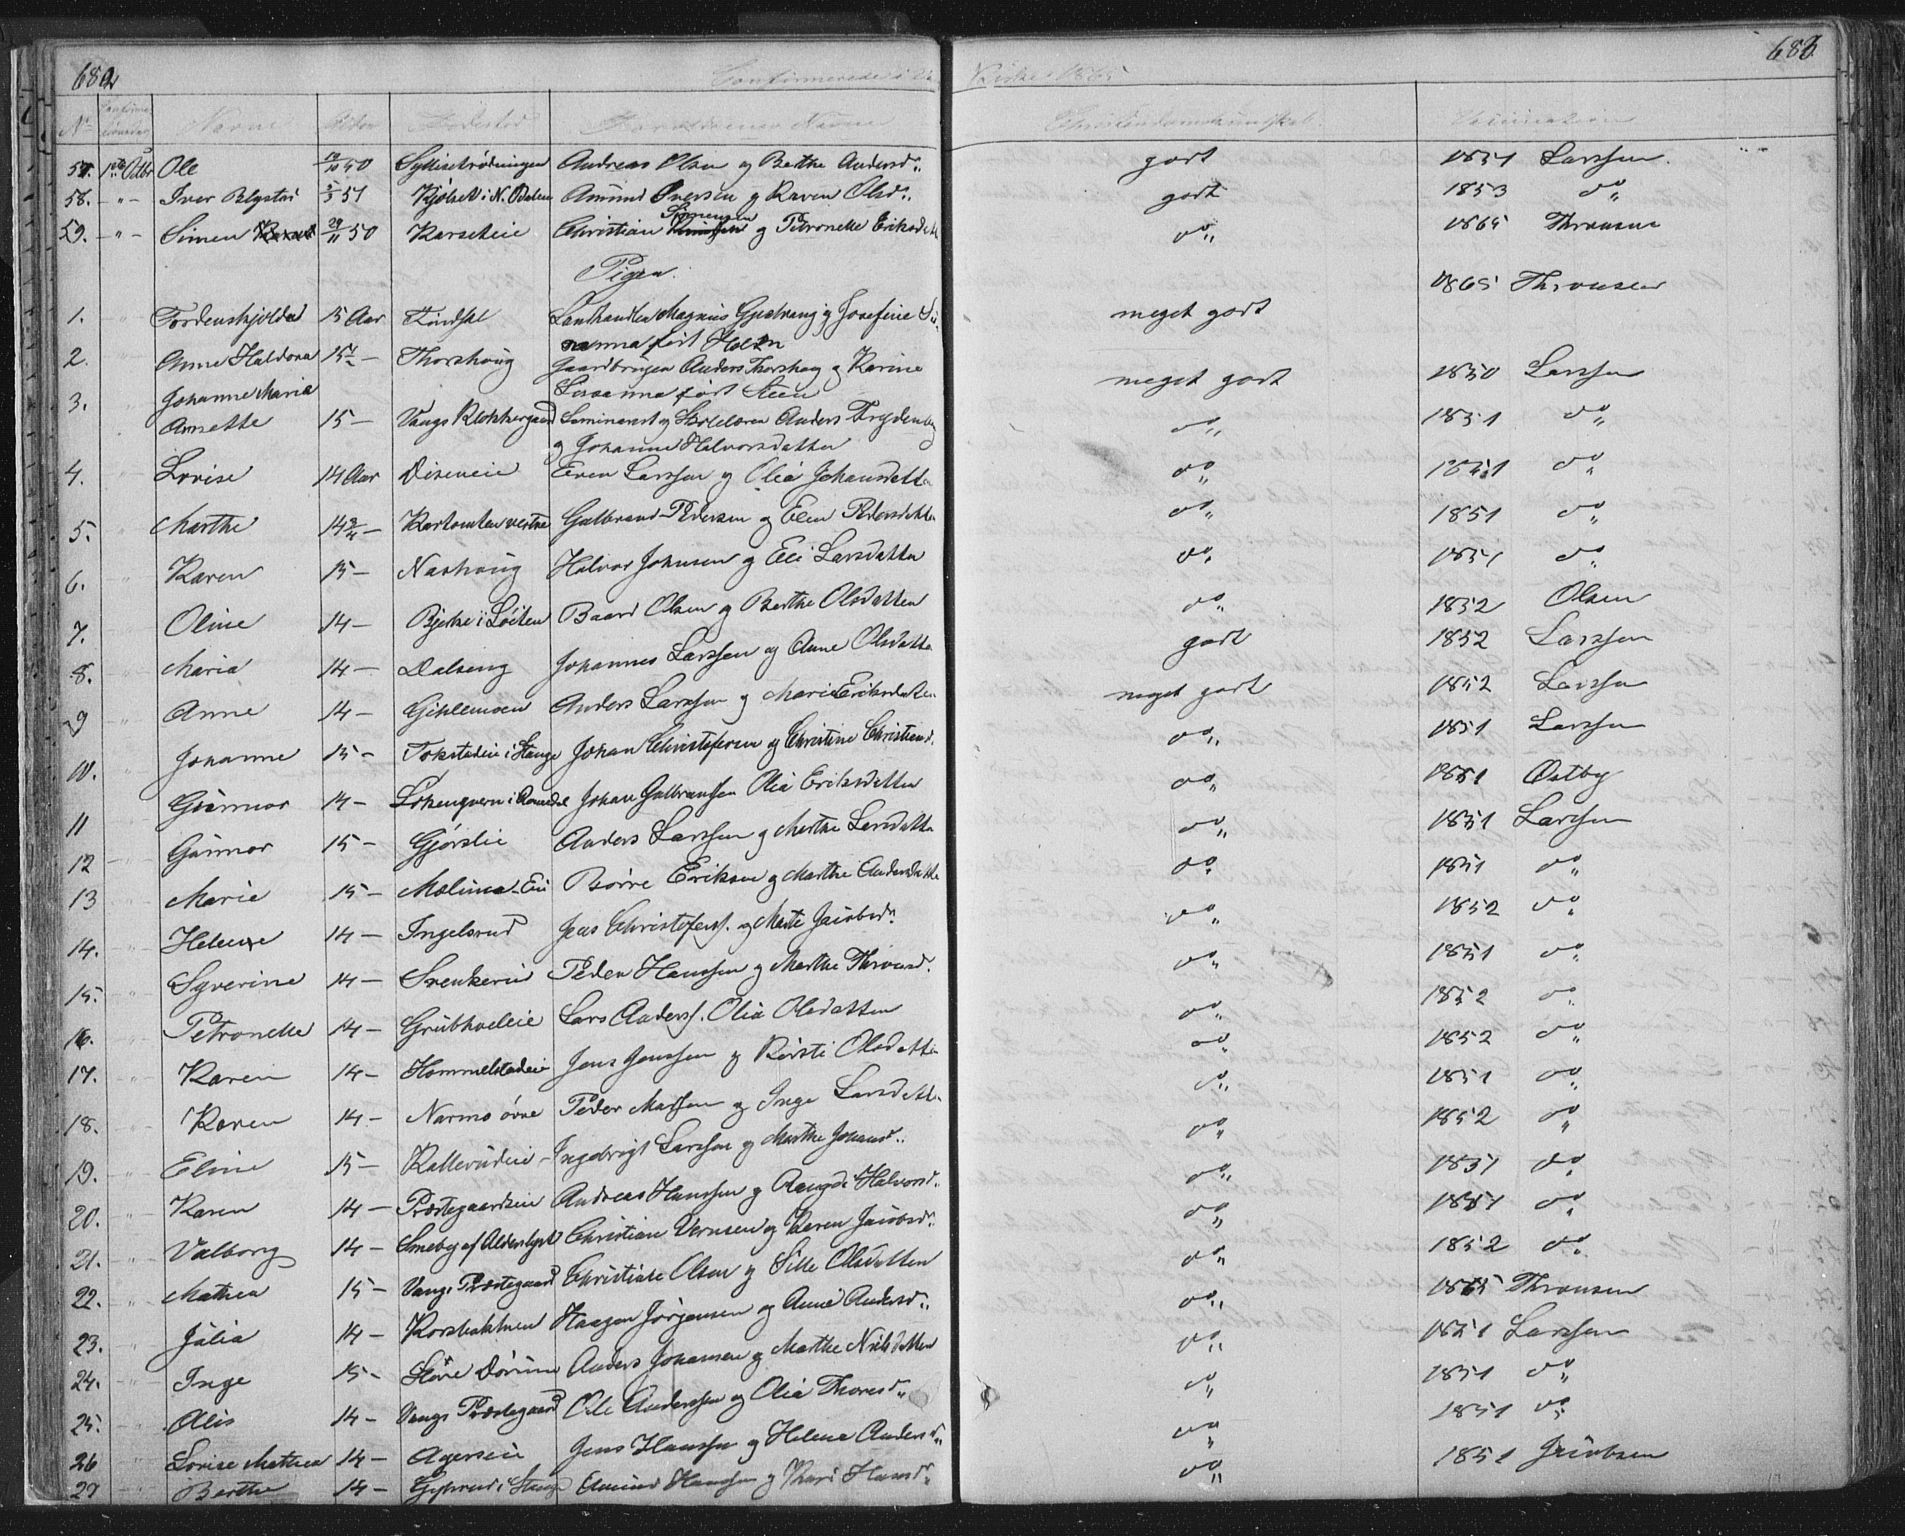 682
683
Confirmerede i Kirke 1865
No Navne Alder Bosted Forældrenes Navne Christendomskundskab. Vaccination
57. 1ste Octbr Ole 50 Andreas Olsen og Berthe Andersd. godt 1851 Larssen.
58. -"- Iver Blystad 51 Kjølset i N. Odalen Amund Iversen og Karen Olsd. godt 1853 do
59. -"- Simen 29/11 50 Korsekeie Christian Simensen og Petronelle Eriksdatt do 1865 Thronsen
Pigen.
1865 Thronsen
1. Tordenskjolda 15 Aar Landhandler Magnus og Josefine Su-
sanna født Holen meget godt
2. Anne Haldora 15 - Thorshoug Gaardbruger Anders Thorshoug og Karine
Susanna født Steen meget godt 1850 Larssen
3. Johanne Maria
Annette 15 - Vangs Klokkergaard Seminarist og Skolelærer Anders Frydenberg
og Johanne Halvorsdatter do 1851 do
4. Lovise 14 Aar Diseneie Even Larssen og Olia Johansdatter do 1851 do
5. Marthe 14 - vestre Gulbrand Pedersen og Elen Pedersdatter do 1851 do
6. Karen 15 - Nashoug Halvor Johnsen og Eli Larsdatter do 1851 do
7. Oline 14 - Bjerke i Løiten Baard Olsen og Berthe Olsdatter do 1852 Olsen
8. Maria 14 - Dalseng Johannes Larssen og Anne Olsdatter godt 1852 Larssen
9 Anne 14 - Gihlemoen Anders Larssen og Marie Eriksdatter meget godt 1852 Larssen
10. Johanne 15 - Tokstadeie i Stange Johan Christofersen og Christine Christiansd. do 1851 Larssen
11 Gunnor 14 - Johan Gulbransen Olia Eriksdatter do 1851 Østby
12 Gunnor 15 - Gjørslie Anders Larssen og Marthe Larsdatter do 1851 Larssen
13 Marie 15 - Børre Eriksen og Marthe Andersdatter do 1851 do
14. Helene 14 - Ingelsrud Jens Christofers. og Marte Jacobsd. do 1852 do
15. Syverine 14 - Svenkerud Peder Hanssen og Marthe Thronsd. do 1851 do
16. Petronelle 14 - Grubholeie Lars Anders. Olia Olsdatter do 1852 do
17. Karen 14 - Hommelstadeie Jens Jenssen og Kirsti Olsdatter do 1852 do
18. Karen 14 - Narmo øvre Peder Matsen og Inge Larsdatt. do 1851 do
19. Eline 15 - Kallerudeie - Ingebrigt Larssen og Marthe Johansd. do 1852 do
20. Karen 14 - Præstegaardseie Andreas Hanssen og Halvorsd. do 1851 do
21. Valborg 14 - Smeby af Alderslyst Christian og Karen Jacobsd. do 1851 do
22. Mathea 15 - Vangs Præstegaard Christian Olsen og Sille Olsdatter do 1852 do
23. Julia 14 - Korsbakken Haagen Jørgensen og Anne Andersd. do 1865 Thronsen
24. Inge 15 - Store Dørum Anders Johansen og Marthe Nilsdatter do 1851 Larssen
25. Alis 14 - Vangs Præstegaard Ole Anderssen og Olia Thoresd. do 1851 do
26 Lovise Mathea 14 - Agerseie Jens Hanssen og Helene Andersd. do 1851 do
27 Berthe 14 - i Stange Amund Hanssen og Kari Hansd. do 1851 Jacobsen